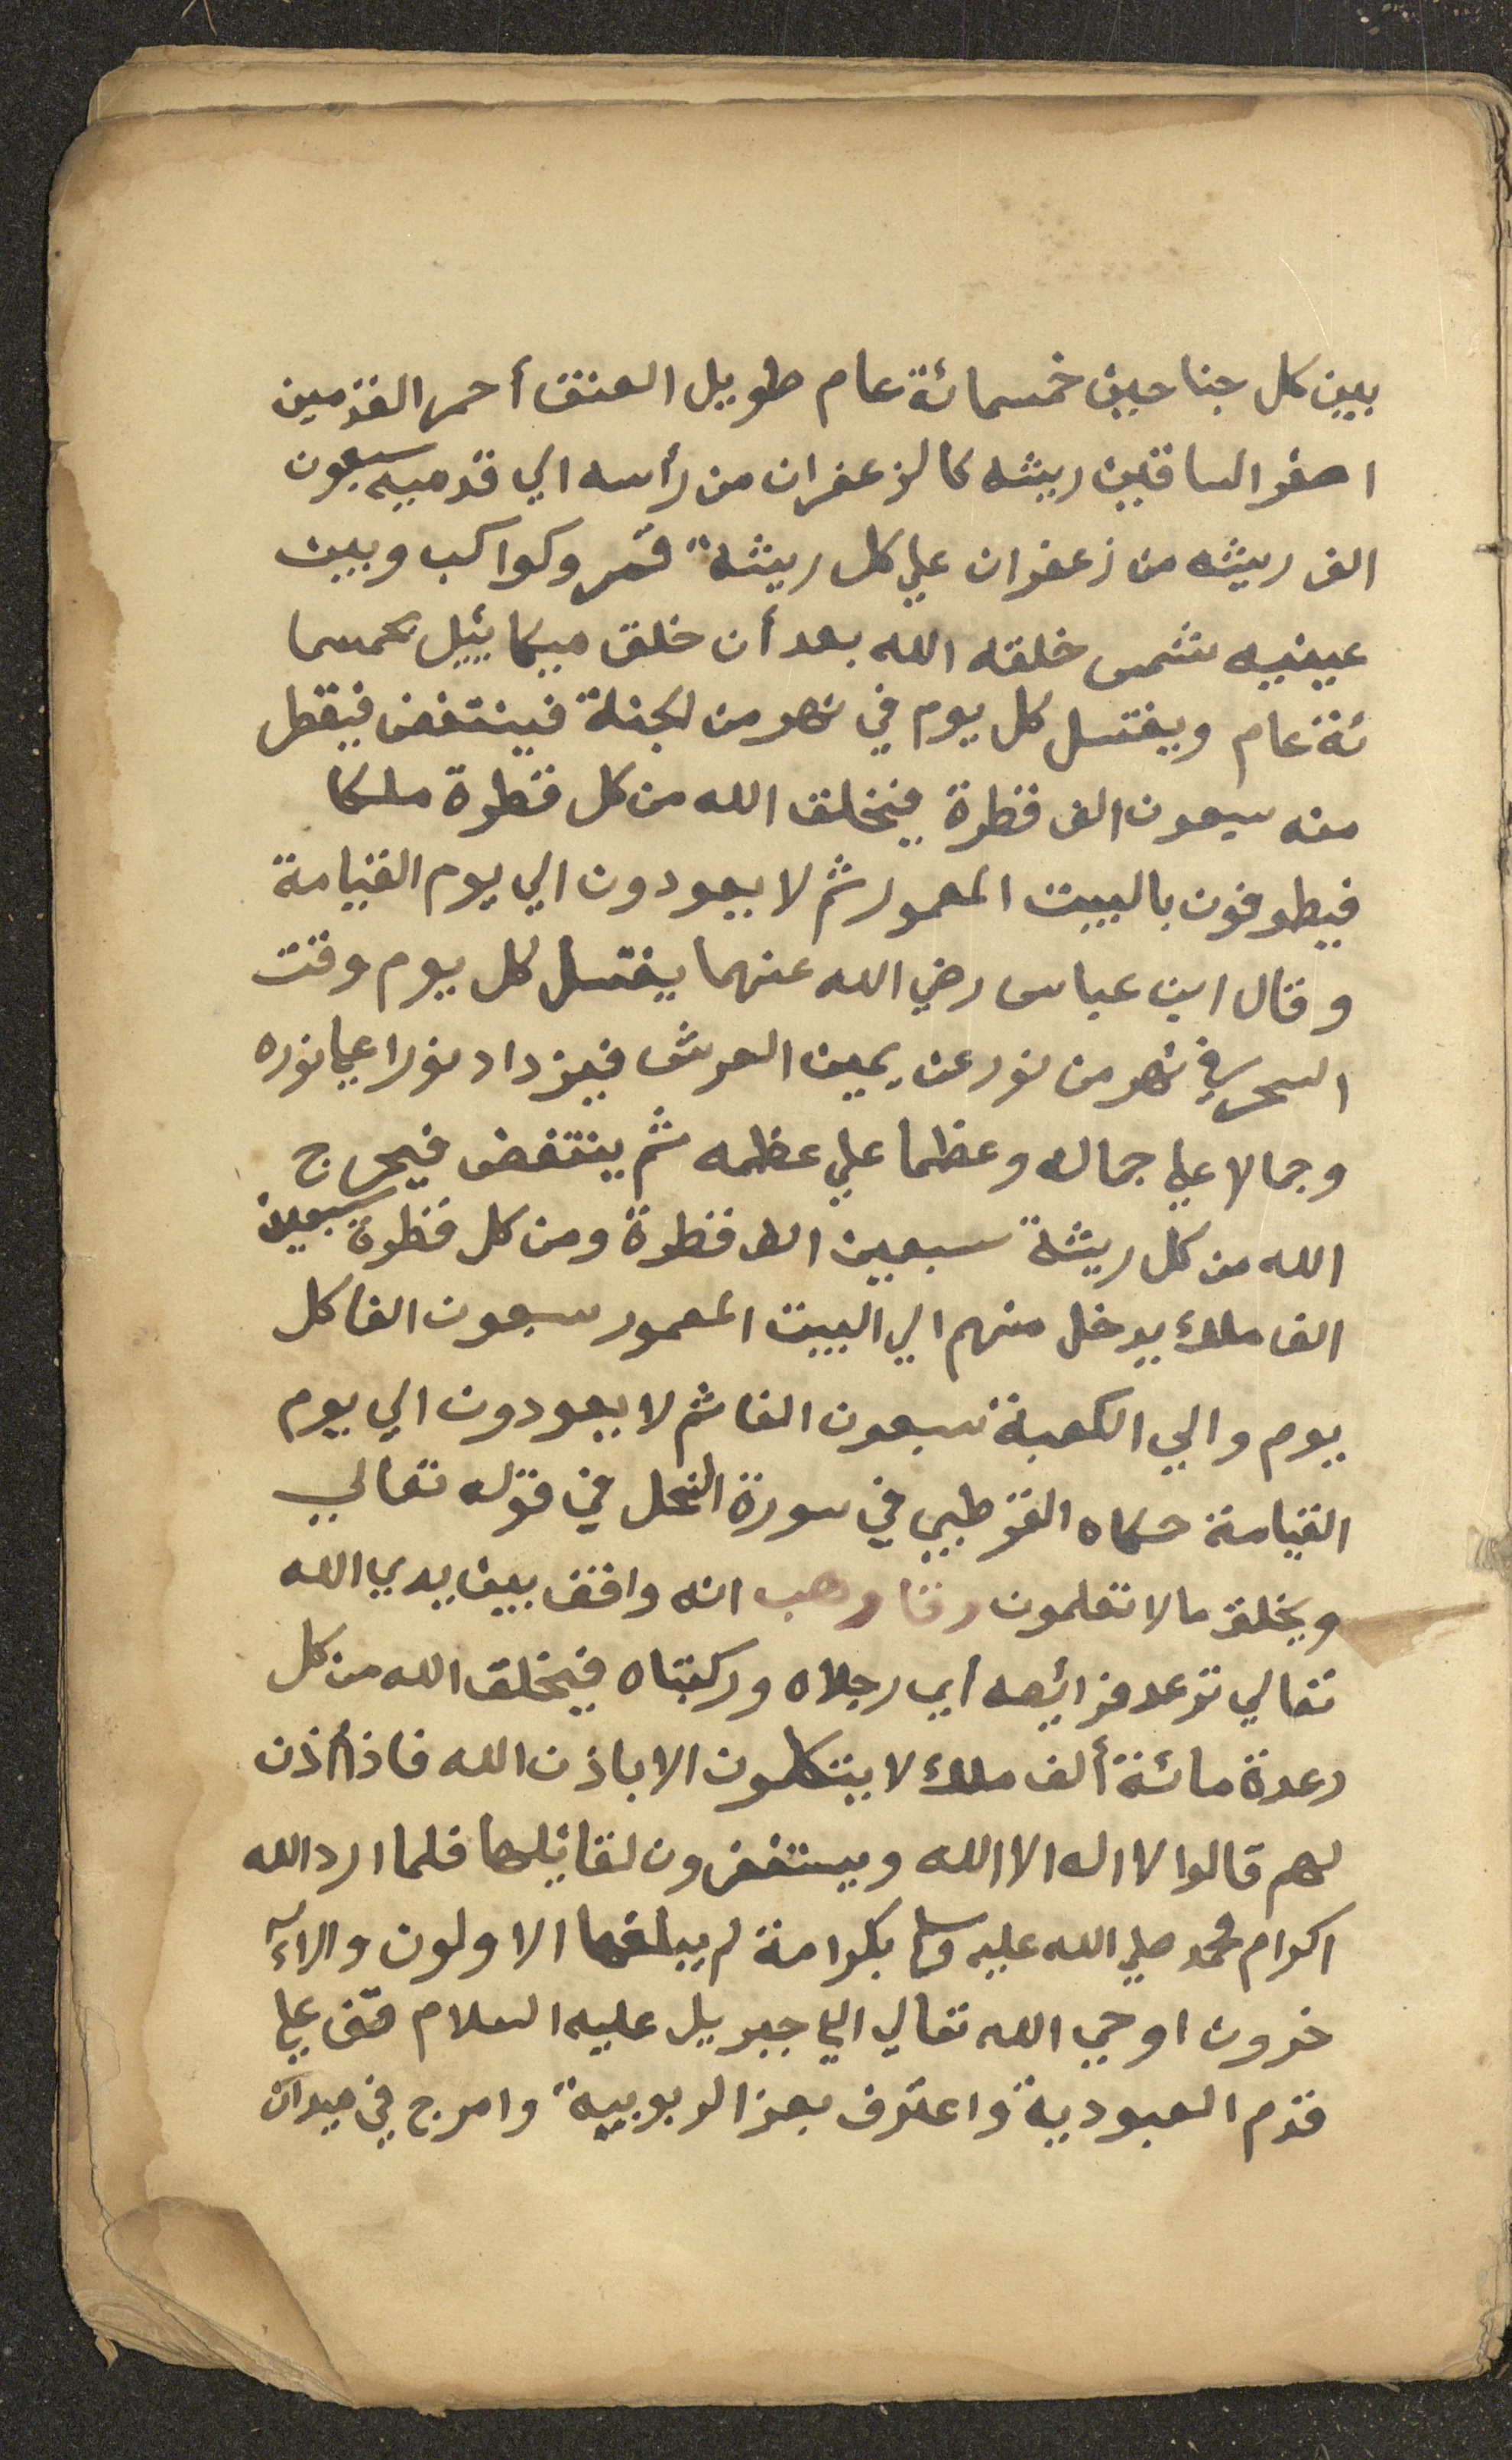 بين كل جناحين خمسمائة عام طويل العنق أحمر القدمين
اصفر الساقين ريشه كالزعفران من رأسه الي قدميه سبعون
الف ريشه من زعفران علي كل ريشة قمر وكواكب وبين
عينيه شمس خلقه الله بعد أن خلق ميكائيل بخمسما
ئة عام ويغتسل كل يوم في نهر من الجنة فينتفض فيقطر
منه سبعون الف قطرة فيخلق الله من كل قطرة ملكا
فيطوفون بالبيت المعمور ثم لا يعودون الي يوم القيامة
وقال ابن عباس رضي الله عنهما يغتسل كل يوم وقت
السحر في نهر من نور عن يمين العرش فيزداد نورا علي نوره
وجمالا علي جماله وعظما علي عظمه ثم ينتفض فيخرج
الله من كل ريشة سبعين الف قطرة ومن كل قطرة سبعين
الف ملك يدخل منهم الي البيت المعمور سبعون الفا كل
يوم والي الكعبة سبعون الفا ثم لا يعودون الي يوم
القيامة حكاه القرطبي في سورة النحل في قوله تعالي
ويخلق ما لا تعلمون وقا وهب انه واقف بين يدي الله
تعالي ترعد فرائصه أي رجلاه وركبتاه فيخلق الله من كل
رعدة مائة ألف ملك لا يتكلمون الا باذن الله فاذا أذن
لهم قالوا لا اله الا الله ويستغفرون لقائلها فلما ارد الله
اكرام محمد صلي الله عليه وسلم بكرامة لم يبلغها الاولون والاآ
خرون اوحي الله تعالي الي جبريل عليه السلام قف علي
قدم العبودية واعترف بعز الربوبية وامرج في ميدان